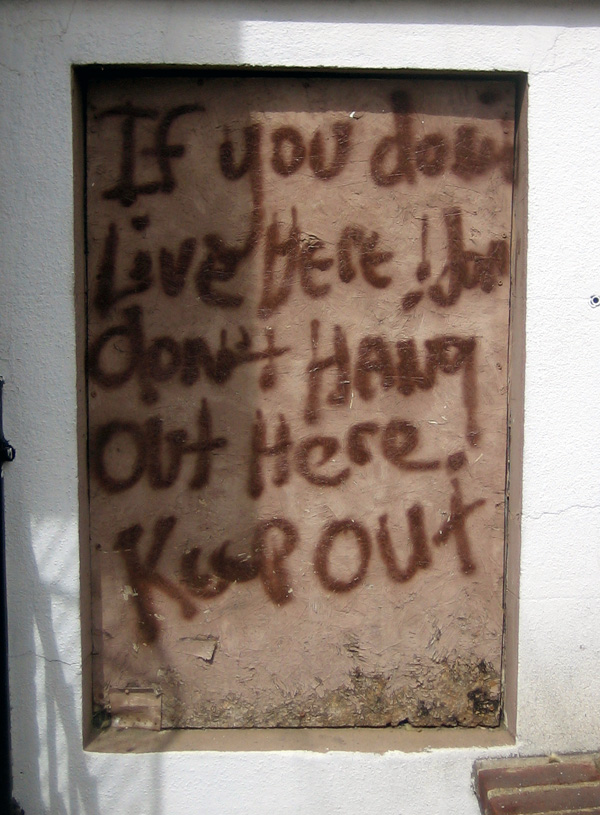 If you don
Live Here!
don't HANg
Out Here!
Keep Out